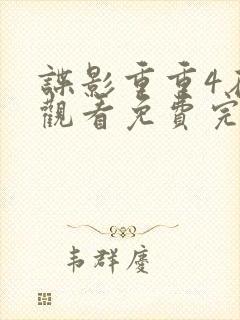 諜影重重4
觀看免費完
韦群慶